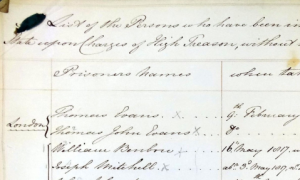 List of the Persons who have been in
State upon Charges of High Treason, without
Prisoners Names when ta
London
Thomas Evans x 9th February
Thomas John Evans x Do
William Benbow x 16th May 1817
Joseph Mitchell x 3d May 1817